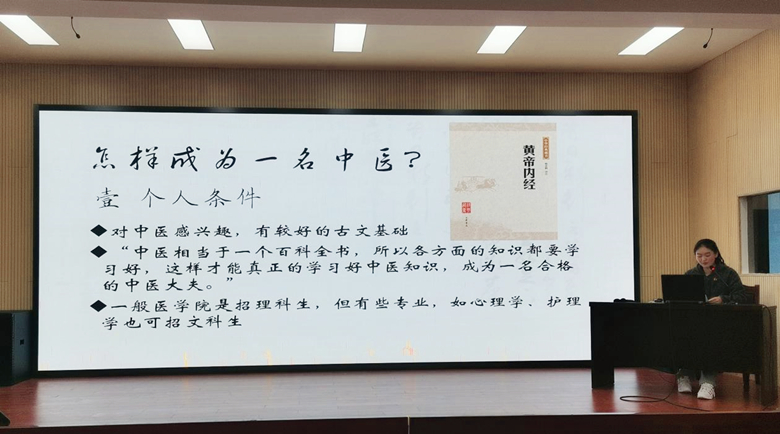 怎样成为一名中医?
壹 个人条件
◆对中医感兴趣，有较好的古文基础
◆“中医相当于一个百科全书，所以各方面的知识都要学
习好，这样才能真正的学习好中医知识，成为一名合格
的中医大夫。”
◆一般医学院是招理科生，但有些专业，如心理学、护理
学也可招文科生
黄帝内经